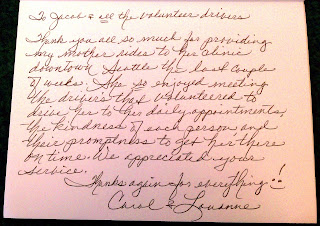 To Jacob & all the volunteer drivers
Thank you all so much for providing
my mother rides to her clinic
downtown Seattle the last couple
of weeks. She so enjoyed meeting
the drivers that volunteered to
drive her to her daily appointments,
the kindness of each person, and
their promptness to get her there
on time. We appreciated your
service.
Thanks again for everything!
Carol & Louanne